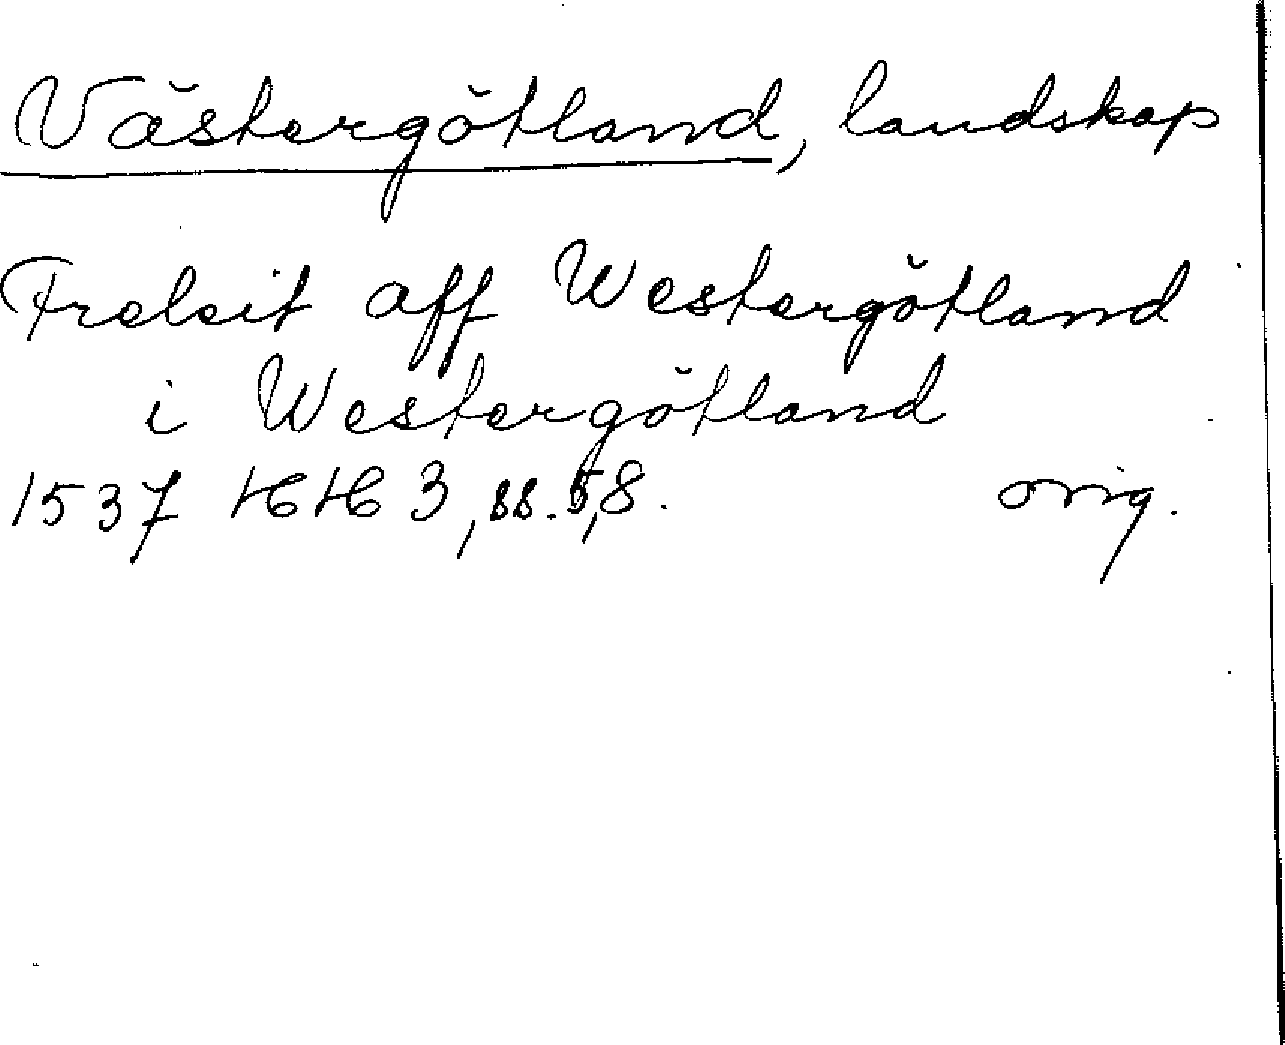 Västergötland, landskap
Frelsit aff Westergötland
i Westergötland
1537 HH 3, ss. 5,8. orig.